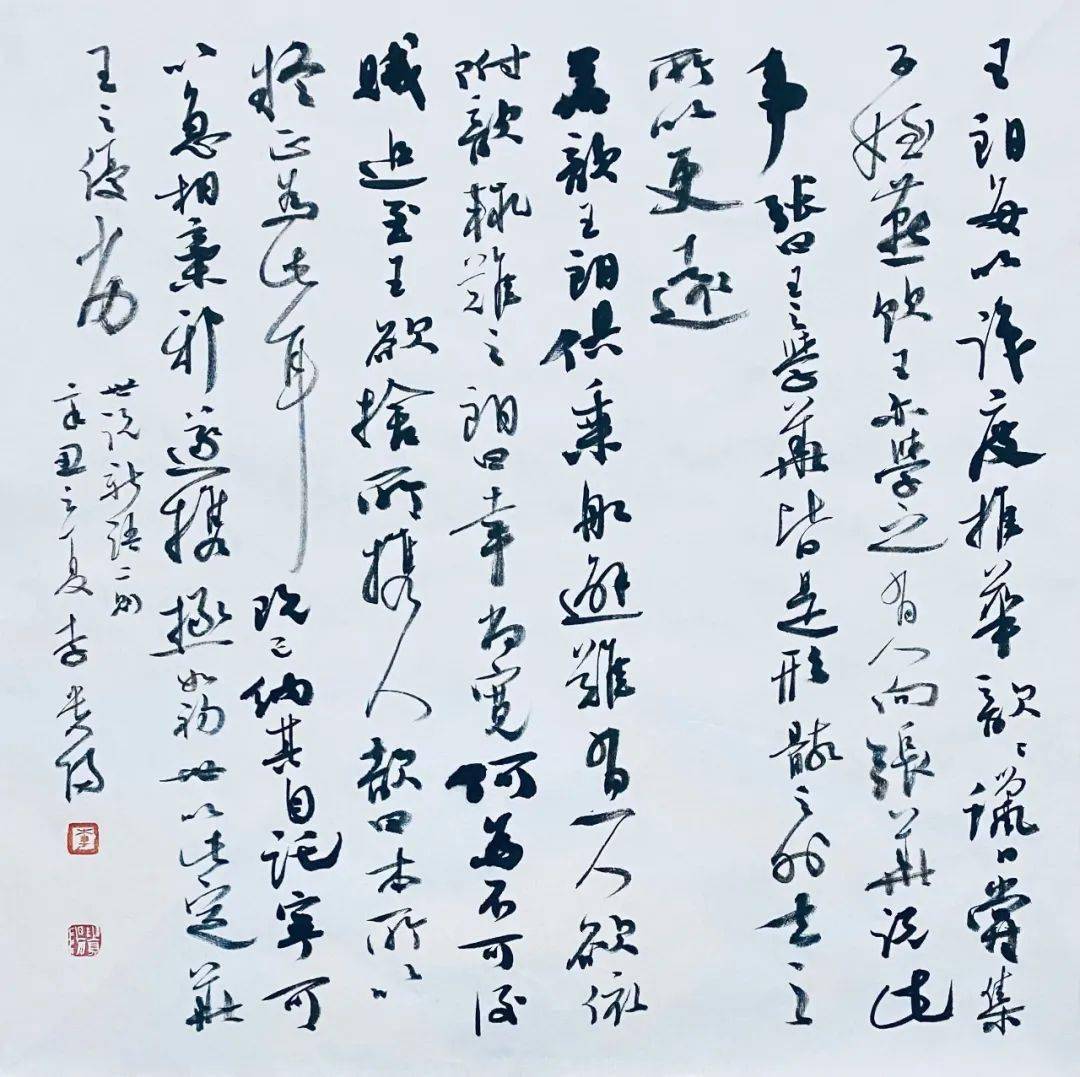 王朗每以識度推華歆歆蠟日嘗集
子姪燕飲王亦學之有人向張華説此
事張曰王之學華皆是形骸之外去之
所以更遠
華歆王朗俱乘船避難有一人欲依
附歆輒難之朗曰幸尚寬何為不可後
賊追至王欲捨所攜人歆曰本所以
疑正為此耳既已納其自託寧可
以急相棄邪遂攜拯如初世以此定華
王之優劣
世説新語二則
辛丑之夏李貴陽